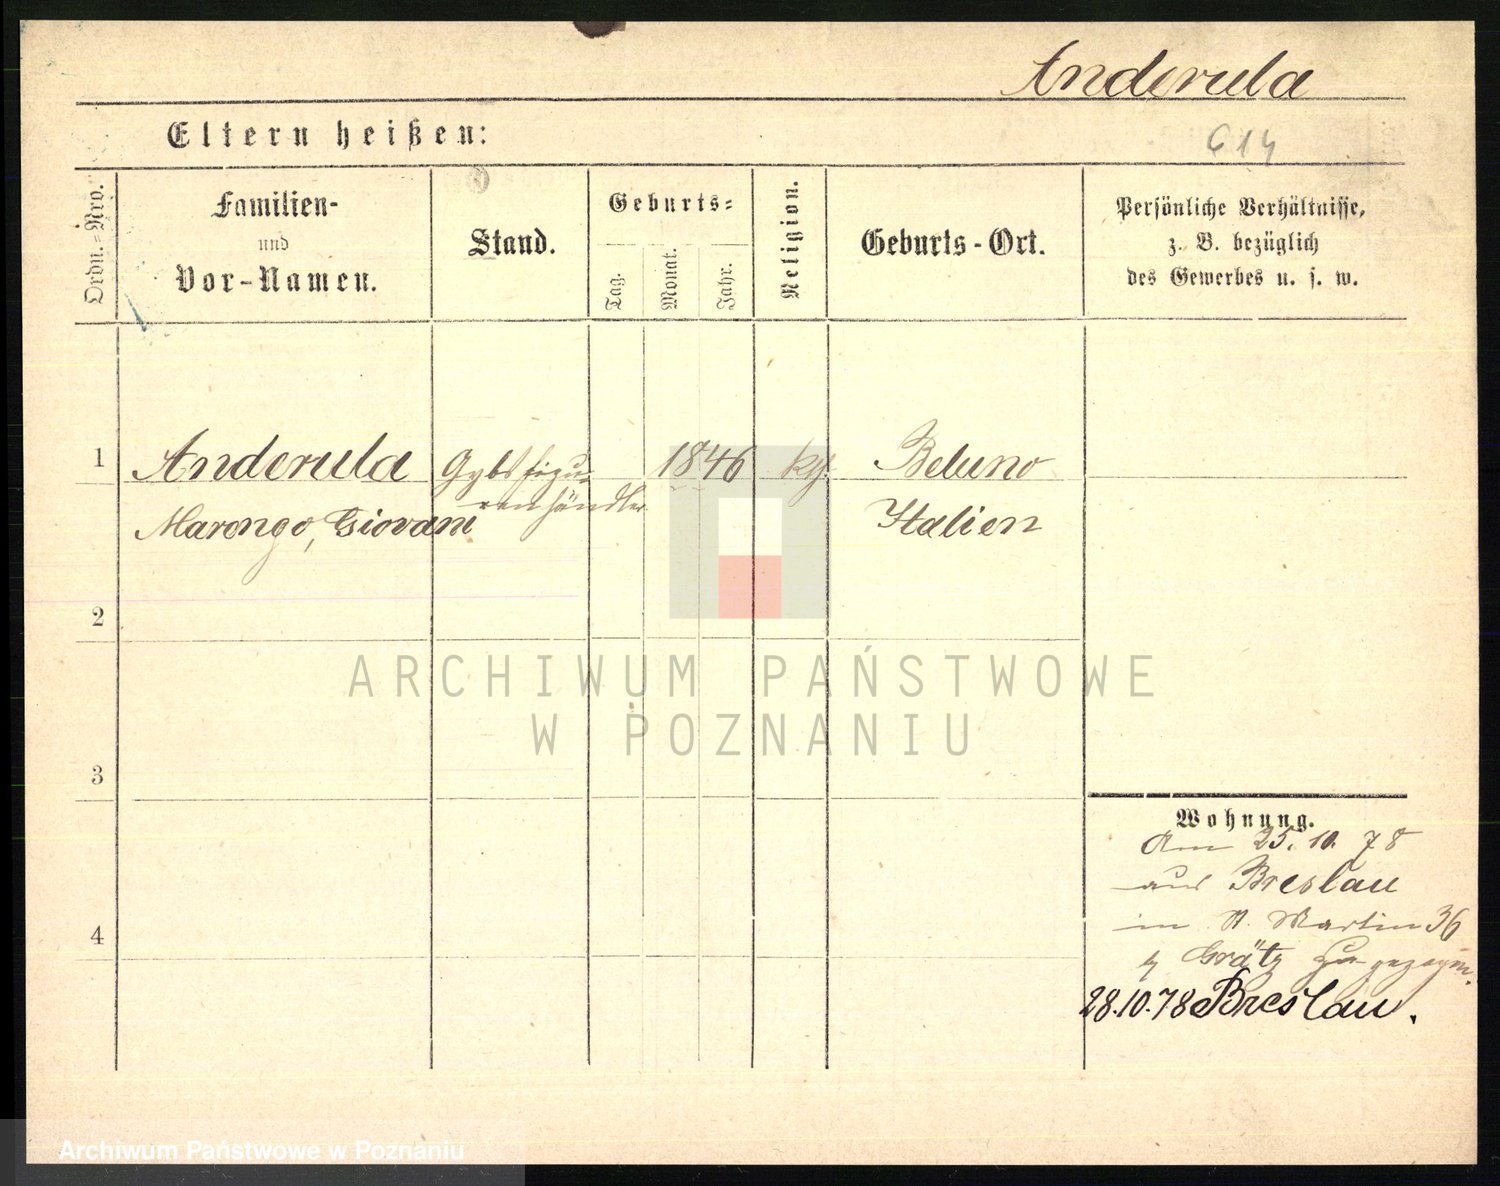 Anderula
Eltern heißen:
614
Ordn.=Nro.
Familien-
und
Vor-Namen.
Stand.
Geburts=
Tag.
Monat.
Jahr.
Religion.
Geburts-Ort.
Persönliche Verhältnisse,
z. B. bezüglich
des Gewerbes u. s. w.
1
Anderula
Marongo, Giovani
Gybsfigu-
renhändler
1846
kth.
Beluno
Italien
2
3
4
Wohnung.
Am 25. 10. 78
aus Breslau
in St. Martin 36
b/ Grätz zugezogen.
28.10.78 Breslau.
ARCHIWUM PAŃSTWOWE
W POZNANIU
Archiwum Państwowe w Poznaniu